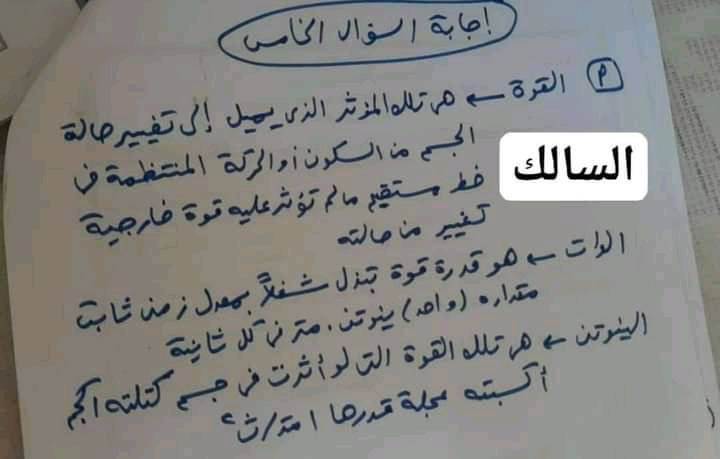 إجابة السؤال الخامس
م القوة ← هى تلك المؤثر الذى يميل إلى تغيير حالة
الجسم من السكون أو الحركة المنتظمة فى
السالك
خط مستقيم مالم تؤثر عليه قوة خارجية
تغيير من حالته
الوات ← هو قدرة قوة تبذل شغلاً بمعدل زمنى ثابت
مقداره (واحد) نيوتن. متر فى كل ثانية
النيوتن ← هى تلك القوة التى لو أثرت فى جسم كتلته ١ كجم
أكسبته عجلة قدرها ١ متر/ث٢